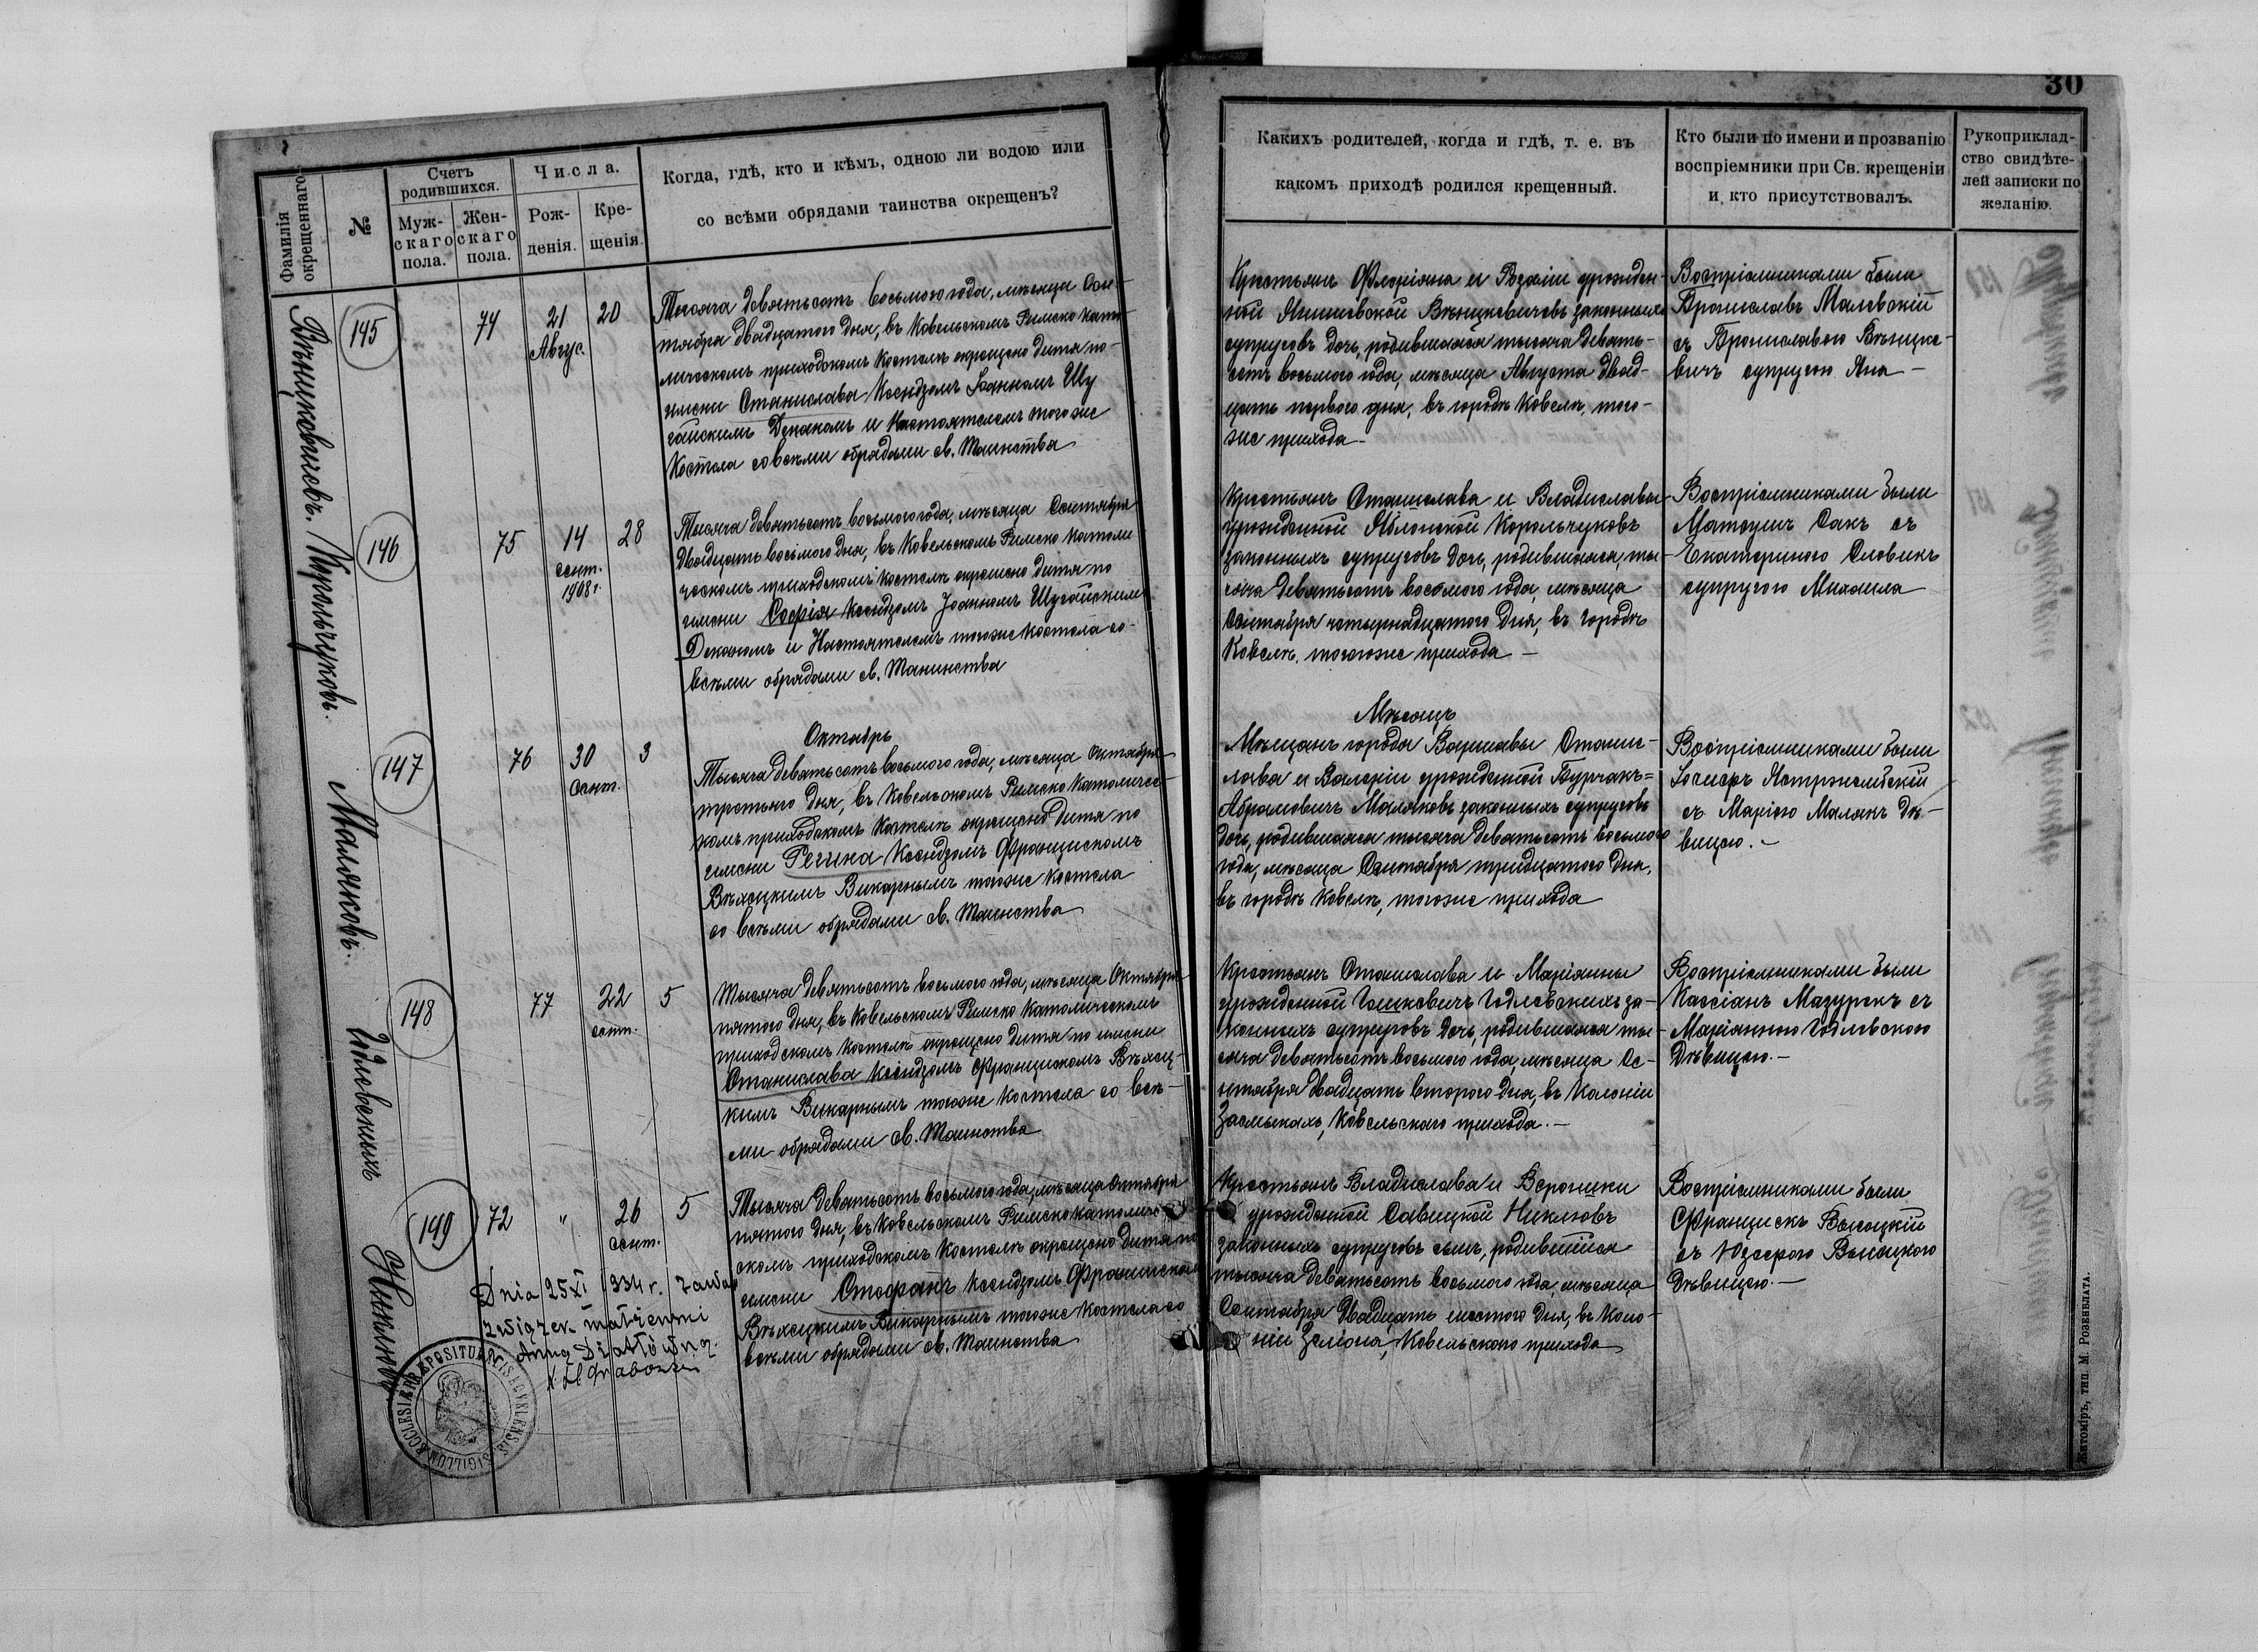 30
Фамилія
окрещеннаго
№
Счетъ
родившихся.
Муж-
скаго
пола.
Жен-
скаго
пола.
Числа.
Рож-
денія.
Кре-
щенія.
Когда, гдѣ, кто и кѣмъ, одною ли водою или
со всѣми обрядами таинства окрещенъ?
Какихъ родителей, когда и гдѣ, т. е. въ
какомъ приходѣ родился крещенный.
Кто были по имени и прозванію
воспріемники при Св. крещеніи
и кто присутствовалъ.
Рукоприклад-
ство свидѣте-
лей записки по
желанію.
145
74
21
Авгус.
20
Тысяча девятьсотъ восьмого года, мѣсяца Сен-
тября двадцатого дня, въ Ковельскомъ Римско Като-
лическомъ приходскомъ костелѣ окрещено дитя по
имени Станислава Ксендзомъ Іоанномъ Шу
гайскимъ Деканомъ и Настоятелемъ тогоже
Костела со всѣми обрядами св. таинства
Крестьянъ Флоріяна и Розаліи урожден-
ной Венцкевичовъ законныхъ
супруговъ дочь, родившаяся тысяча девять-
сотъ восьмого года, мѣсяца Августа двад-
цать первого дня, въ городѣ Ковелѣ, того-
же прихода
Воспріемниками были
Брониславъ Малевскій
съ Брониславою Венцке-
вичъ супругою Яна
Корольчуковъ.
146
75
14
сент.
1908 г.
28
Тысяча девятьсотъ восьмого года, мѣсяца Сентября
двадцать восьмого дня, въ Ковельскомъ Римско Католи
ческомъ приходскомъ костелѣ окрещено дитя по
имени Софія Ксендзомъ Іоанномъ Шугайскимъ
Деканомъ и Настоятелемъ тогоже костела со-
всѣми обрядами св. Таинства
Крестьянъ Станислава и Владиславы
урожденной Яблонской Корольчуковъ
законныхъ супруговъ дочь, родившаяся ты-
сяча девятьсотъ восьмого года, мѣсяца
Сентября четырнадцатого дня, въ городѣ
Ковелѣ, тогоже прихода
Воспріемниками были
Матеушъ Сакъ съ
Екатериною Словикъ
супругою Михаила
Октябрь
Мѣсяцъ
Маляковъ.
147
76
30
Сент.
3
Тысяча девятьсотъ восьмого года, мѣсяца Октября
третьяго дня, въ Ковельскомъ Римско Католичес-
комъ приходскомъ Костелѣ окрещено дитя по
имени Регина Ксендзомъ Францискомъ
Викарнымъ тогоже костела
со всѣми обрядами св. Таинства
Мѣщанъ города Варшавы Станис-
лава и Валеріи урожденной Бурчакъ=
Абрамовичъ Маляковъ законныхъ супруговъ
дочь, родившаяся тысяча девятьсотъ восьмого
года, мѣсяца Сентября тридцатого дня,
въ городѣ Ковелѣ, тогоже прихода
Воспріемниками были
Іосифъ Ястржембскій
съ Маріею Малякъ дѣ-
вицею.
148
77
22
сент.
5
Тысяча девятьсотъ восьмого года, мѣсяца Октября
пятого дня, въ Ковельскомъ Римско Католическомъ
приходскомъ костелѣ окрещено дитя по имени
Станислава Ксендзомъ Францискомъ
кимъ Викарнымъ тогоже Костела со всѣ-
ми обрядами св. Таинства
Крестьянъ Станислава и Маріянны
урожденной Годлевскихъ за-
конныхъ супруговъ дочь, родившаяся ты-
сяча девятьсотъ восьмого года, мѣсяца Се-
нтября двадцать второго дня, въ Колоніи
Засмыкахъ, Ковельскаго прихода.
Воспріемниками были
Кассіанъ Мазурекъ съ
Маріанною Годлевскою
дѣвицею.
149
72
"
26
Сент.
5
Тысяча девятьсотъ восьмого года, мѣсяца Октября
пятого дня, въ Ковельскомъ Римскокатоличе-
скомъ приходскомъ костелѣ окрещено дитя по
имени Стефанъ Ксендзомъ Францискомъ
Викарнымъ тогоже Костела со
всѣми обрядами св. Таинства
Крестьянъ Владислава и Вероники
урожденной Савицкой Никлювъ
законныхъ супруговъ сынъ, родившійся
тысяча девятьсотъ восьмого года, мѣсяца
Сентября двадцать шестого дня, въ Коло-
ніи Зелена, Ковельского прихода
Воспріемниками были
Францискъ Высоцкій
съ Юзефою Высоцкою
дѣвицею.
Dnia 25 XI 1934 r. zawar
związek małżeński
Anną
SIGILLUM ECCLESIAE PRAEPOSITURALIS
Житоміръ, тип. М. Розенблата.